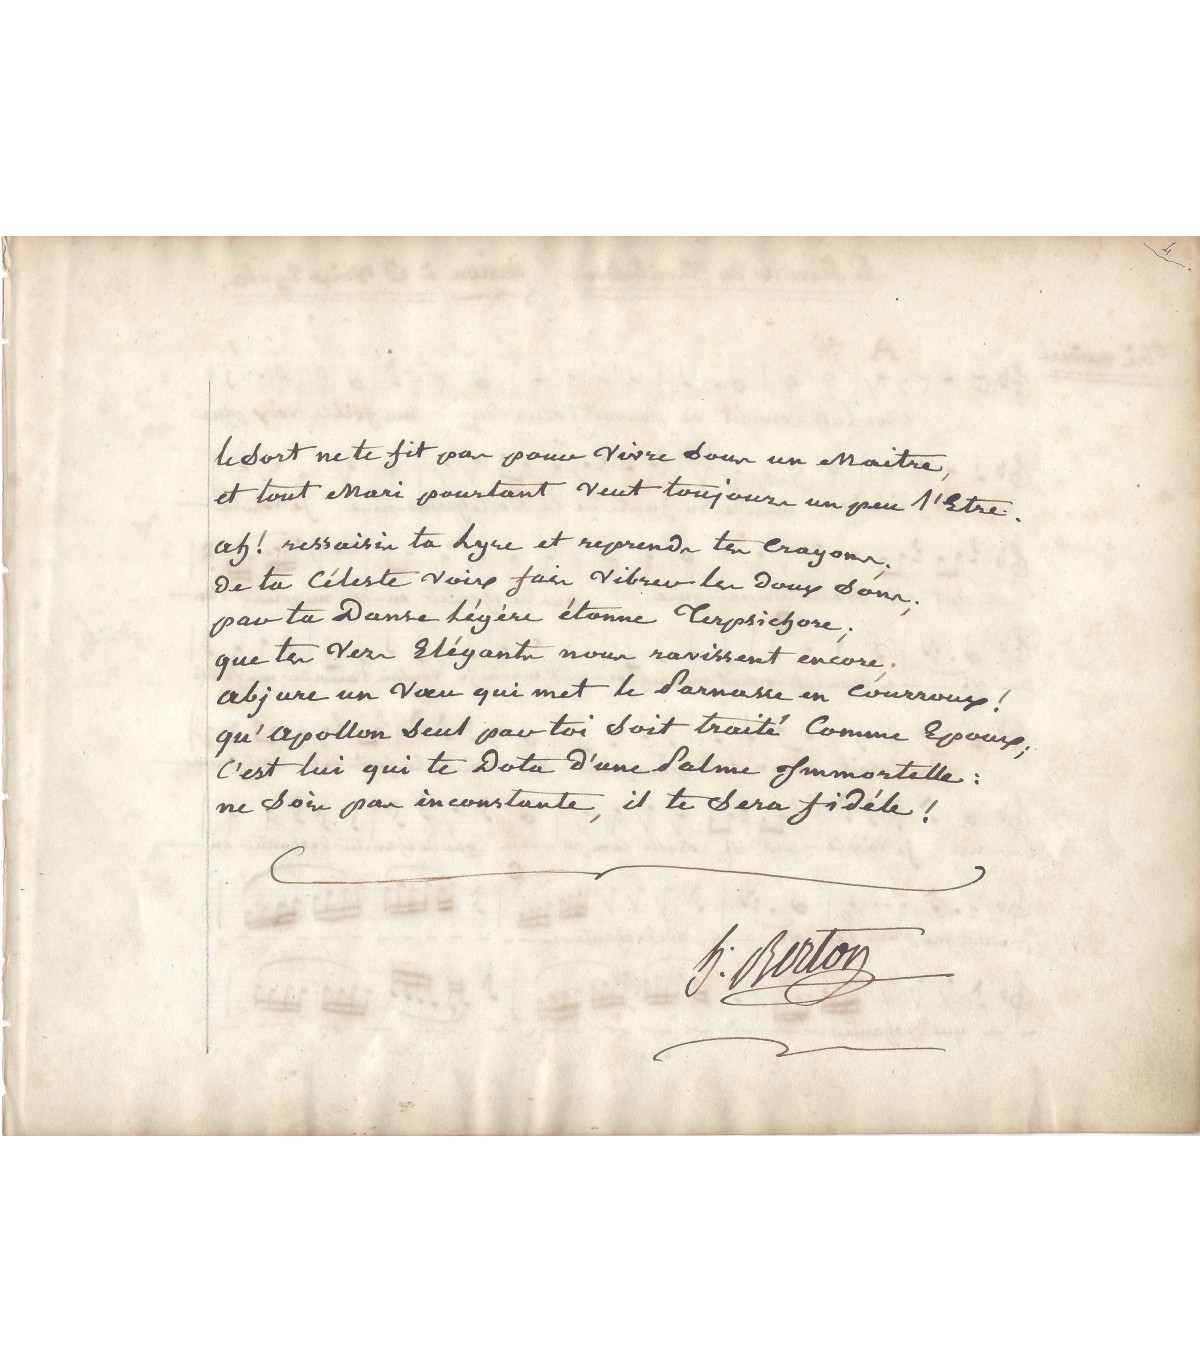 4
le Sort ne te fit pas pour Vivre Sous un Maitre,
et tout Mari pourtant Veut toujours un peu l'Etre.
ah! ressaisis ta Lyre et reprends tes Crayons,
de ta Céleste Voix fais Vibrer les doux Sons,
par ta Danse Légère étonne Terpsichore,
que tes Vers Elégants nous ravissent encore,
abjure un Vœu qui met le Parnasse en Courroux!
qu'Apollon Seul par toi Soit traité Comme Epoux,
C'est lui qui te Dota d'une Palme Immortelle:
ne Sois pas inconstante, il te Sera fidéle!
h. Berton